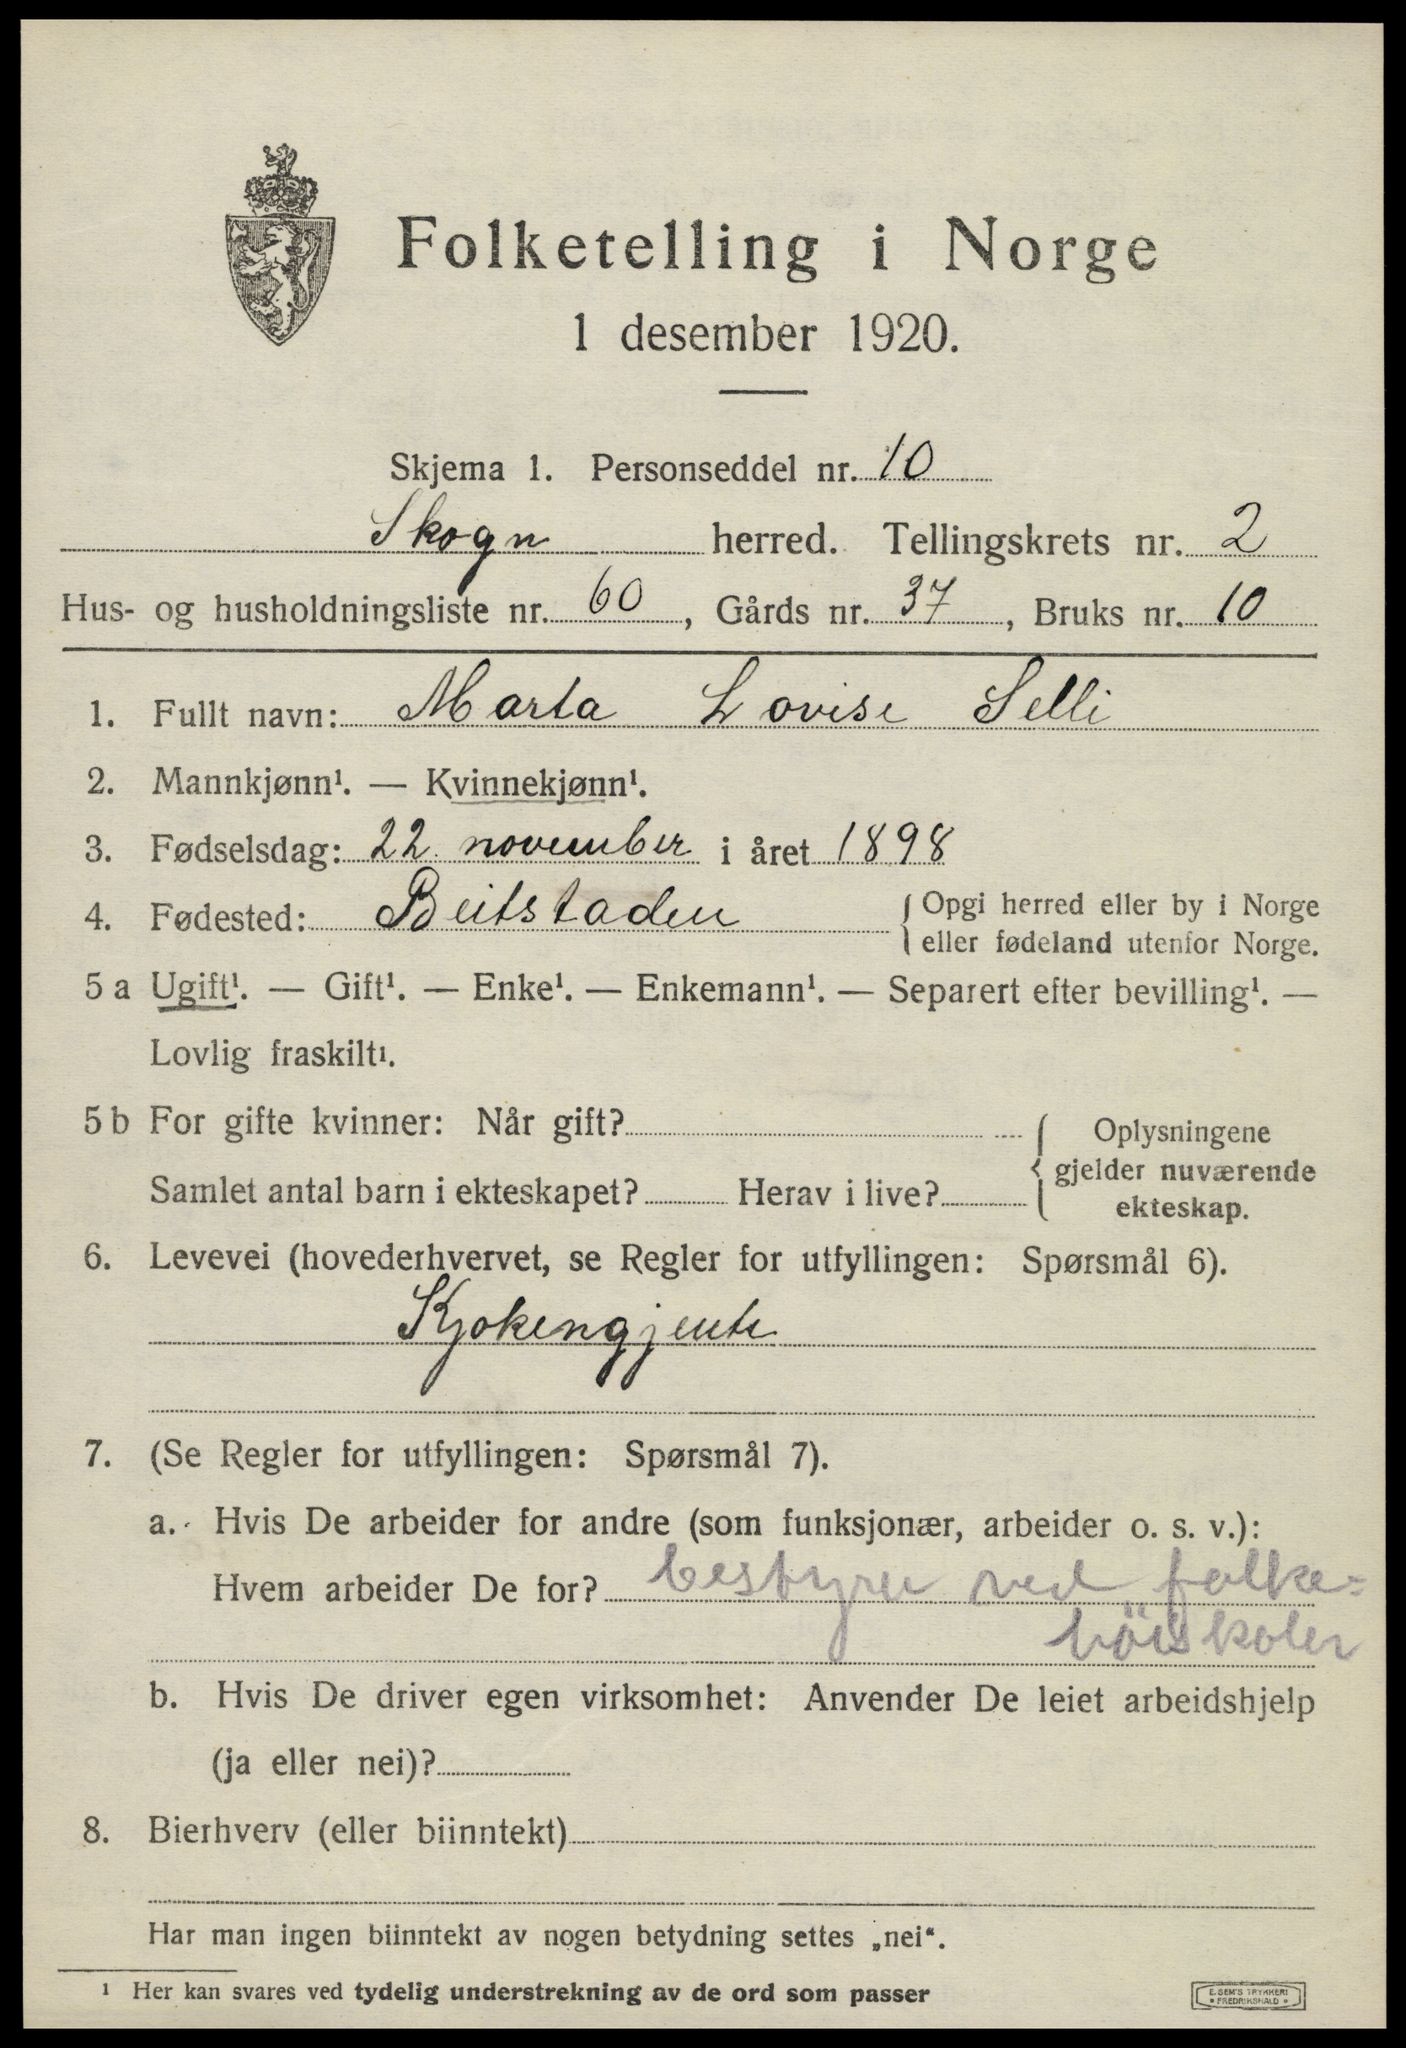 Folketelling i Norge
1 desember 1920.
Skjema 1. Personseddel nr. 10
Skogn herred. Tellingskrets nr. 2
Hus- og husholdningsliste nr. 60, Gårds nr. 37, Bruks nr. 10
1. Fullt navn: Marta Lovise Selli
2. Mannkjønn¹. — Kvinnekjønn¹.
3. Fødselsdag: 22 november i året 1898
4. Fødested: Beitstaden { Opgi herred eller by i Norge
eller fødeland utenfor Norge.
5 a Ugift¹. — Gift¹. — Enke¹. — Enkemann¹. — Separert efter bevilling¹. —
Lovlig fraskilt¹.
5 b For gifte kvinner: Når gift?
Samlet antal barn i ekteskapet? Herav i live?
{ Oplysningene
gjelder nuværende
ekteskap.
6. Levevei (hovederhvervet, se Regler for utfyllingen: Spørsmål 6).
Kjokengjente
7. (Se Regler for utfyllingen: Spørsmål 7).
a. Hvis De arbeider for andre (som funksjonær, arbeider o. s. v.):
Hvem arbeider De for? bestyrer ved folke=
höiskolen
b. Hvis De driver egen virksomhet: Anvender De leiet arbeidshjelp
(ja eller nei)?
8. Bierhverv (eller biinntekt)
Har man ingen biinntekt av nogen betydning settes „nei“.
¹ Her kan svares ved tydelig understrekning av de ord som passer
E. SEM'S TRYKKERI
• FREDRIKSHALD •